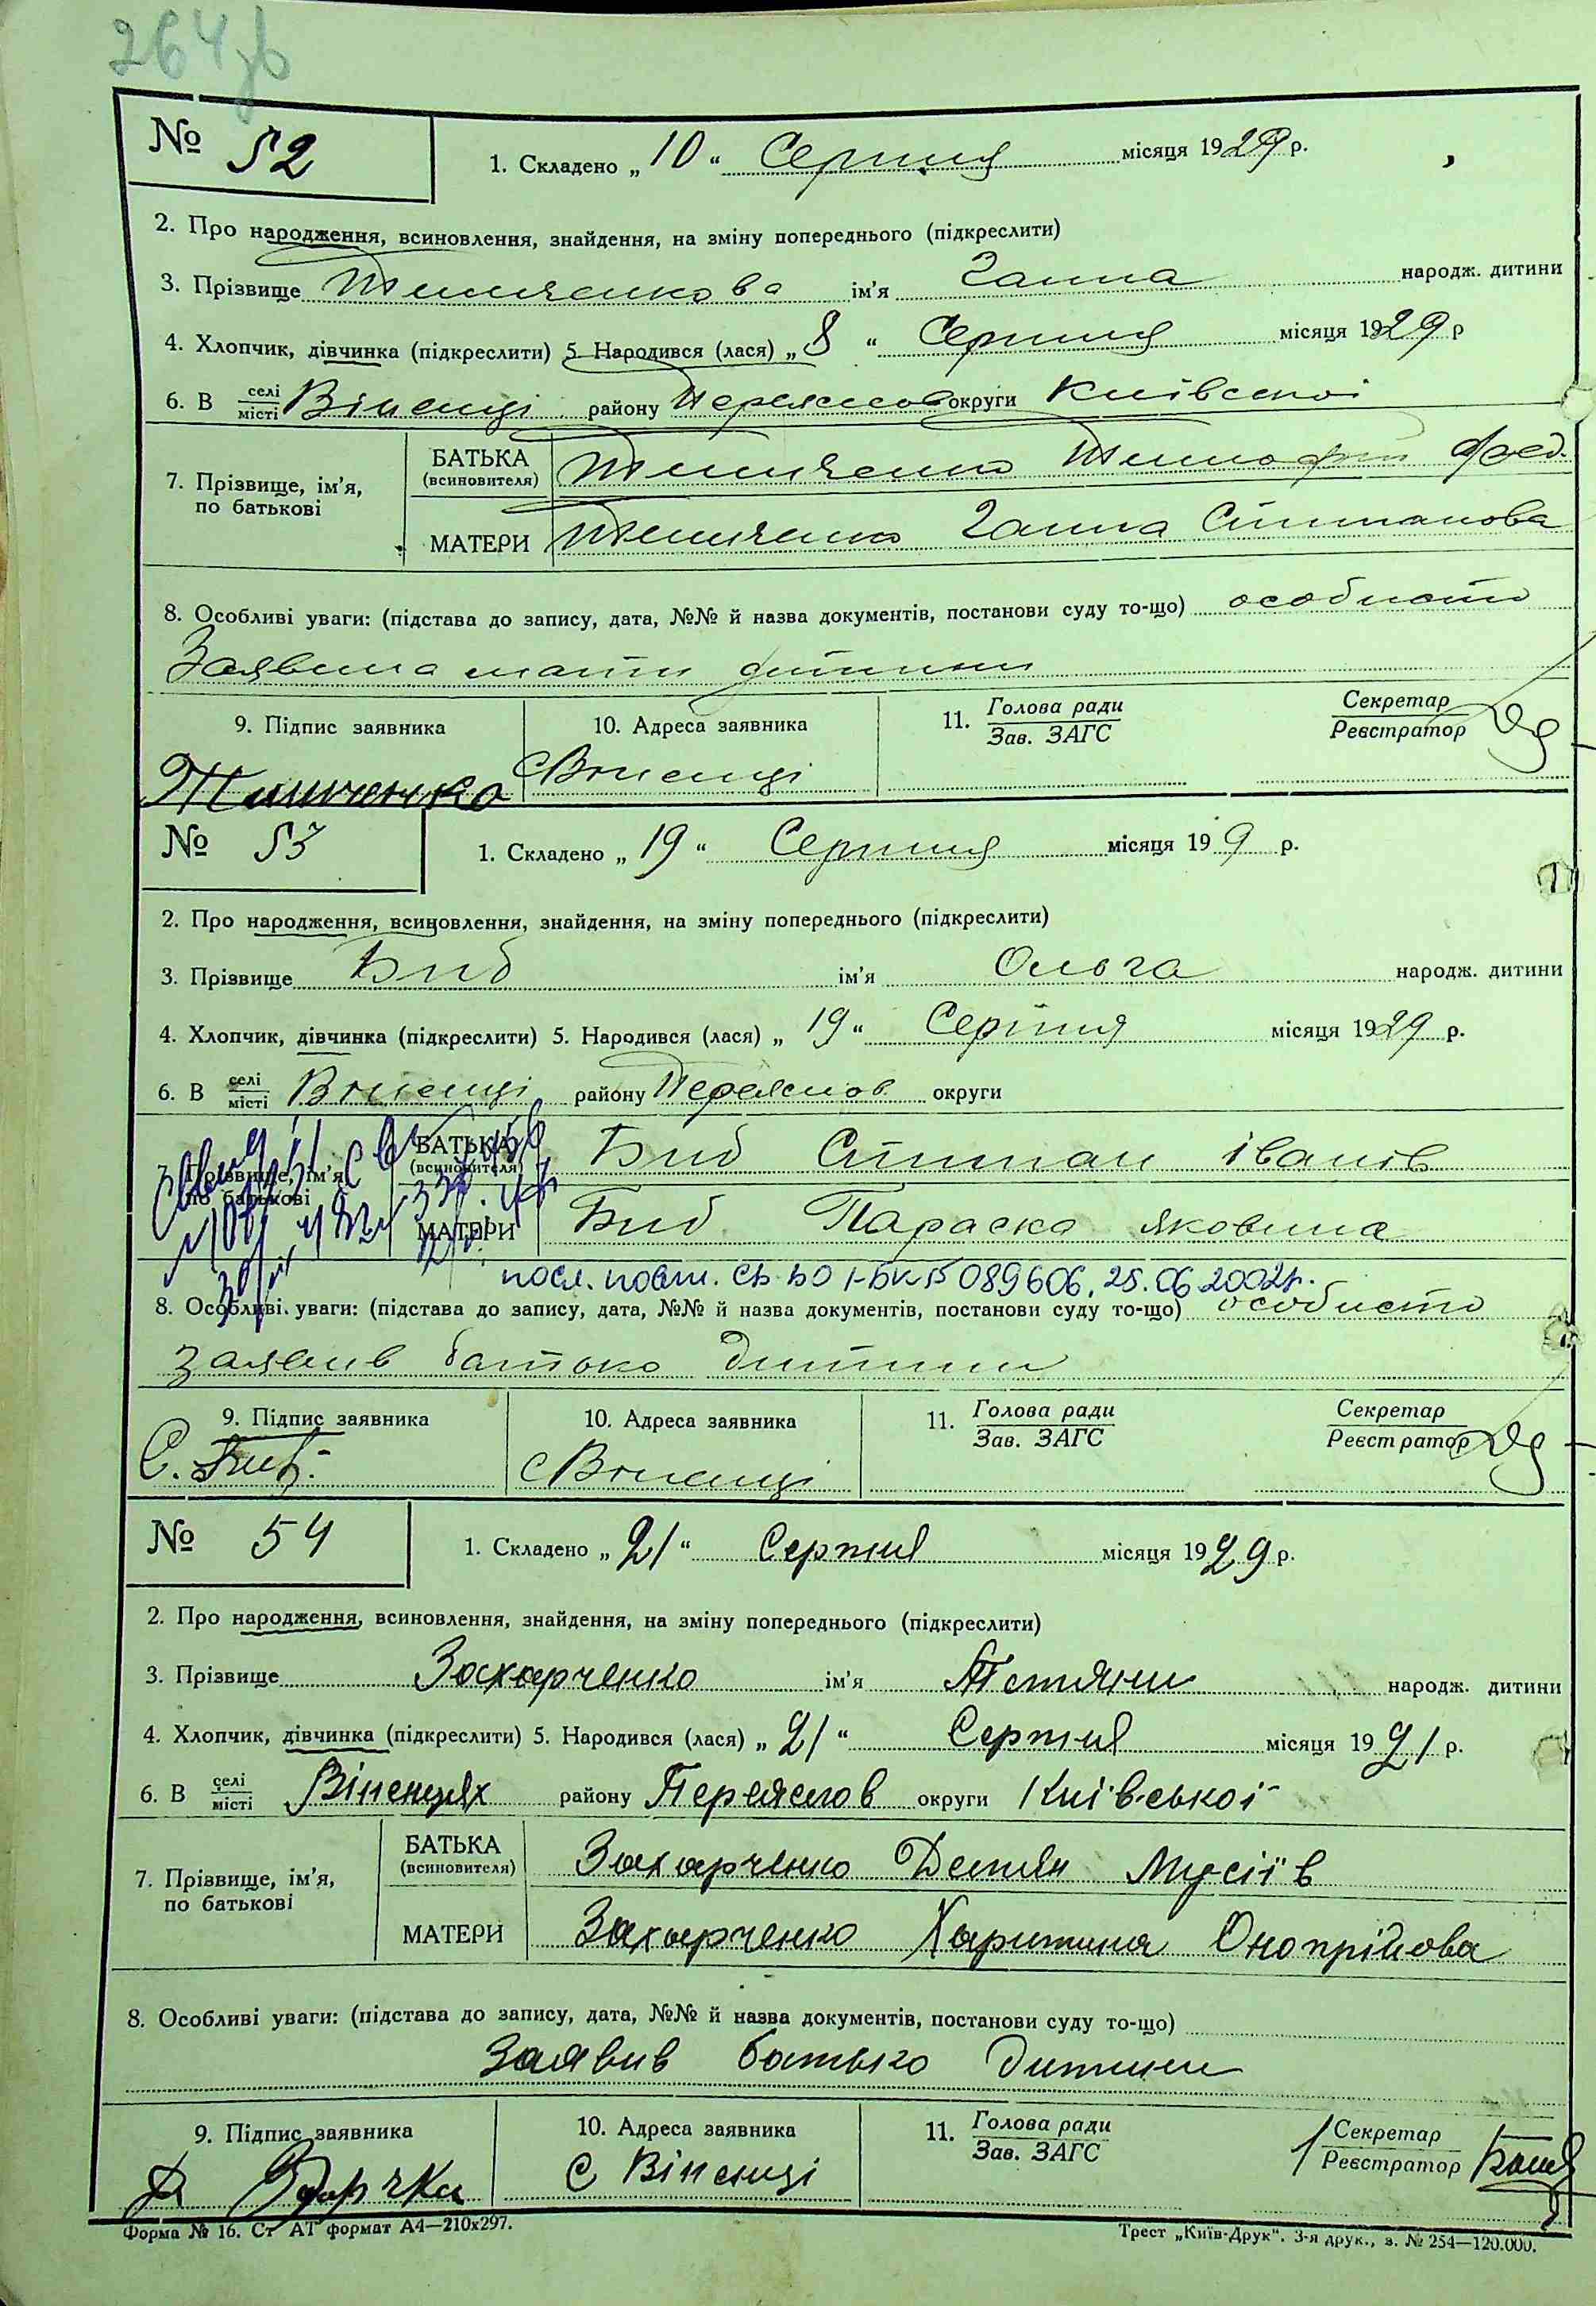 264зв
№ 52
1. Складено „ 10 “ Серпня місяця 1929 р.
2. Про народження, всиновлення, знайдення, на зміну попереднього (підкреслити)
3. Прізвище Тимченкова ім'я Ганна народж. дитини
4. Хлопчик, дівчинка (підкреслити) 5. Народився (лася) „ 8 “ Серпня місяця 1929 р
6. В селі/місті Віненці району Переяслов округи Київської
7. Прізвище, ім'я, по батькові
БАТЬКА (всиновителя) Тимченко Тимофій Фед.
МАТЕРИ Тимченко Ганна Степанова
8. Особливі уваги: (підстава до запису, дата, №№ й назва документів, постанови суду то-що) особисто
Заявила мати дитини
9. Підпис заявника 10. Адреса заявника 11. Голова ради/Зав. ЗАГС Секретар/Реєстратор
Тимченко с Віненці
№ 53
1. Складено „ 19 “ Серпня місяця 19 9 р.
2. Про народження, всиновлення, знайдення, на зміну попереднього (підкреслити)
3. Прізвище Биб ім'я Ольга народж. дитини
4. Хлопчик, дівчинка (підкреслити) 5. Народився (лася) „ 19 “ Серпня місяця 1929 р.
6. В селі/місті Віненці району Переяслов. округи
7. Прізвище, ім'я, по батькові
БАТЬКА (всиновителя) Биб Степан Іванів
МАТЕРИ Биб Параска Яковина
посл. повт. св во І-БК № 089606, 25.06.2002р.
8. Особливі уваги: (підстава до запису, дата, №№ й назва документів, постанови суду то-що) особисто
заявив батько дитини
9. Підпис заявника 10. Адреса заявника 11. Голова ради/Зав. ЗАГС Секретар/Реєстратор
С. Биб. с Віненці
№ 54
1. Складено „ 21 “ Серпня місяця 1929 р.
2. Про народження, всиновлення, знайдення, на зміну попереднього (підкреслити)
3. Прізвище Захарченко ім'я Тетяни народж. дитини
4. Хлопчик, дівчинка (підкреслити) 5. Народився (лася) „ 21 “ Серпня місяця 1921 р.
6. В селі/місті Віненцях району Переяслов округи Київської
7. Прізвище, ім'я, по батькові
БАТЬКА (всиновителя) Захарченко Демян Мусіїв
МАТЕРИ Захарченко Харитина Онопрійова
8. Особливі уваги: (підстава до запису, дата, №№ й назва документів, постанови суду то-що)
Заявив батько дитини
9. Підпис заявника 10. Адреса заявника 11. Голова ради/Зав. ЗАГС Секретар/Реєстратор
с Віненці
Форма № 16. Ст АТ формат А4—210х297.
Трест „Київ-Друк“. 3-я друк., з. № 254—120.000.